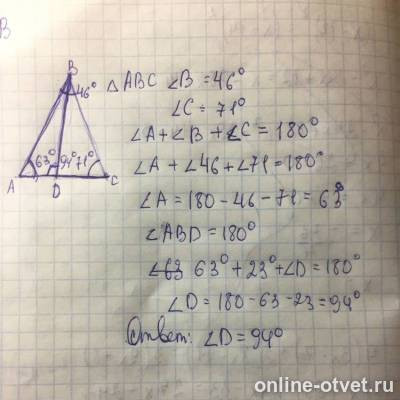 В
B
46°
63° 94° 71°
A D C
△ ABC ∠B = 46°
∠C = 71°
∠A + ∠B + ∠C = 180°
∠A + ∠46 + ∠71 = 180°
∠A = 180 - 46 - 71 = 63°
∠ABD = 180°
∠63 63° + 23° + ∠D = 180°
∠D = 180 - 63 - 23 = 94°
Ответ: ∠D = 94°
online-otvet.ru